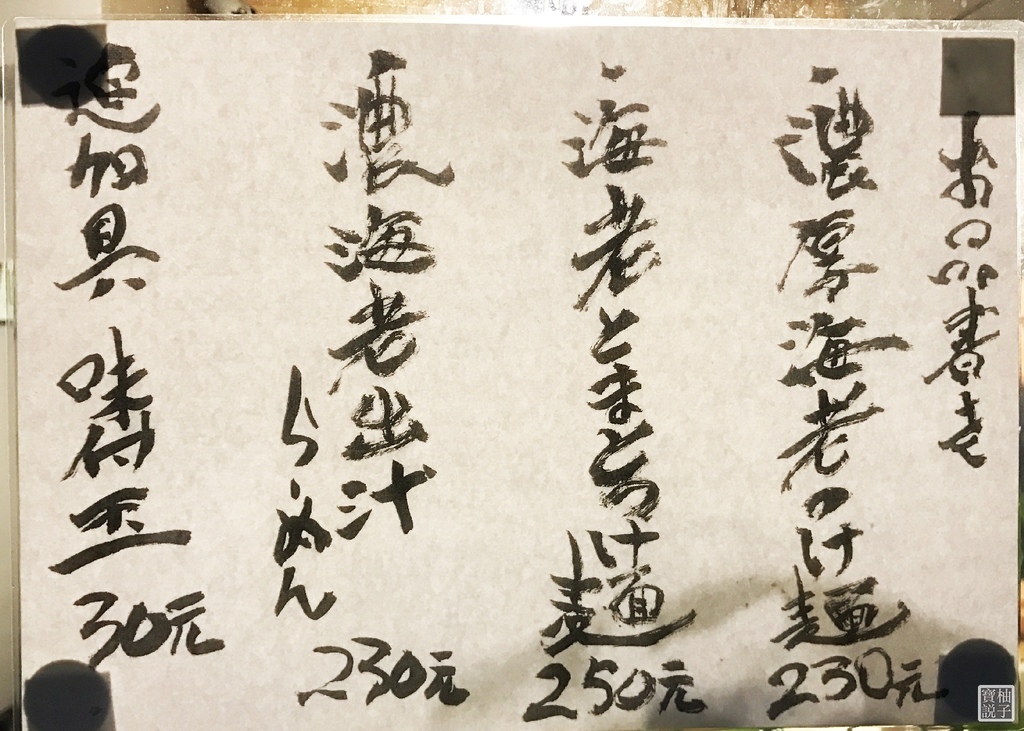 お品書き
一濃厚海老つけ麺
230元
一海老とまとつけ麺
250元
一濃海老出汁
らぁめん
230元
追加具 味付玉
30元
柚子
寶説